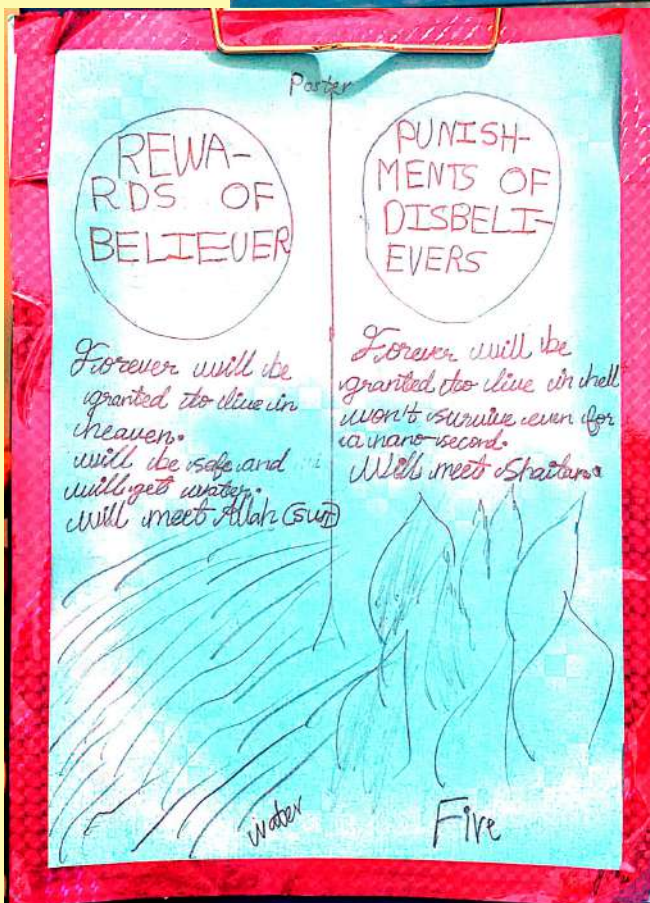 Poster
REWA-
RDS OF
BELIEVER
Forever will be
granted to live in
heaven.
will be safe and
will get water.
will meet Allah (swt)
water
PUNISH-
MENTS OF
DISBELI-
EVERS
Forever will be
granted to live in hell
won't survive even for
a nano-second.
Will meet Shaitan.
Fire